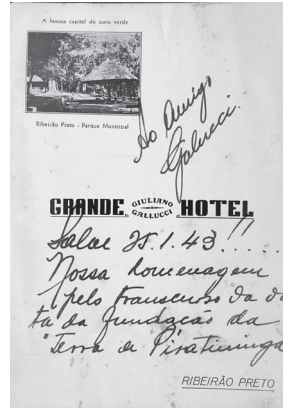 A famosa capital do ouro verde
Ribeirão Preto - Parque Municipal
Ao Amigo
Galucci.
GRANDE GIULIANO GALLUCCI HOTEL
Salve 25.1.43!!.....
Nossa homenagem
pelo transcurso da da
ta da fundação da
"Terra de Piratininga
RIBEIRÃO PRETO